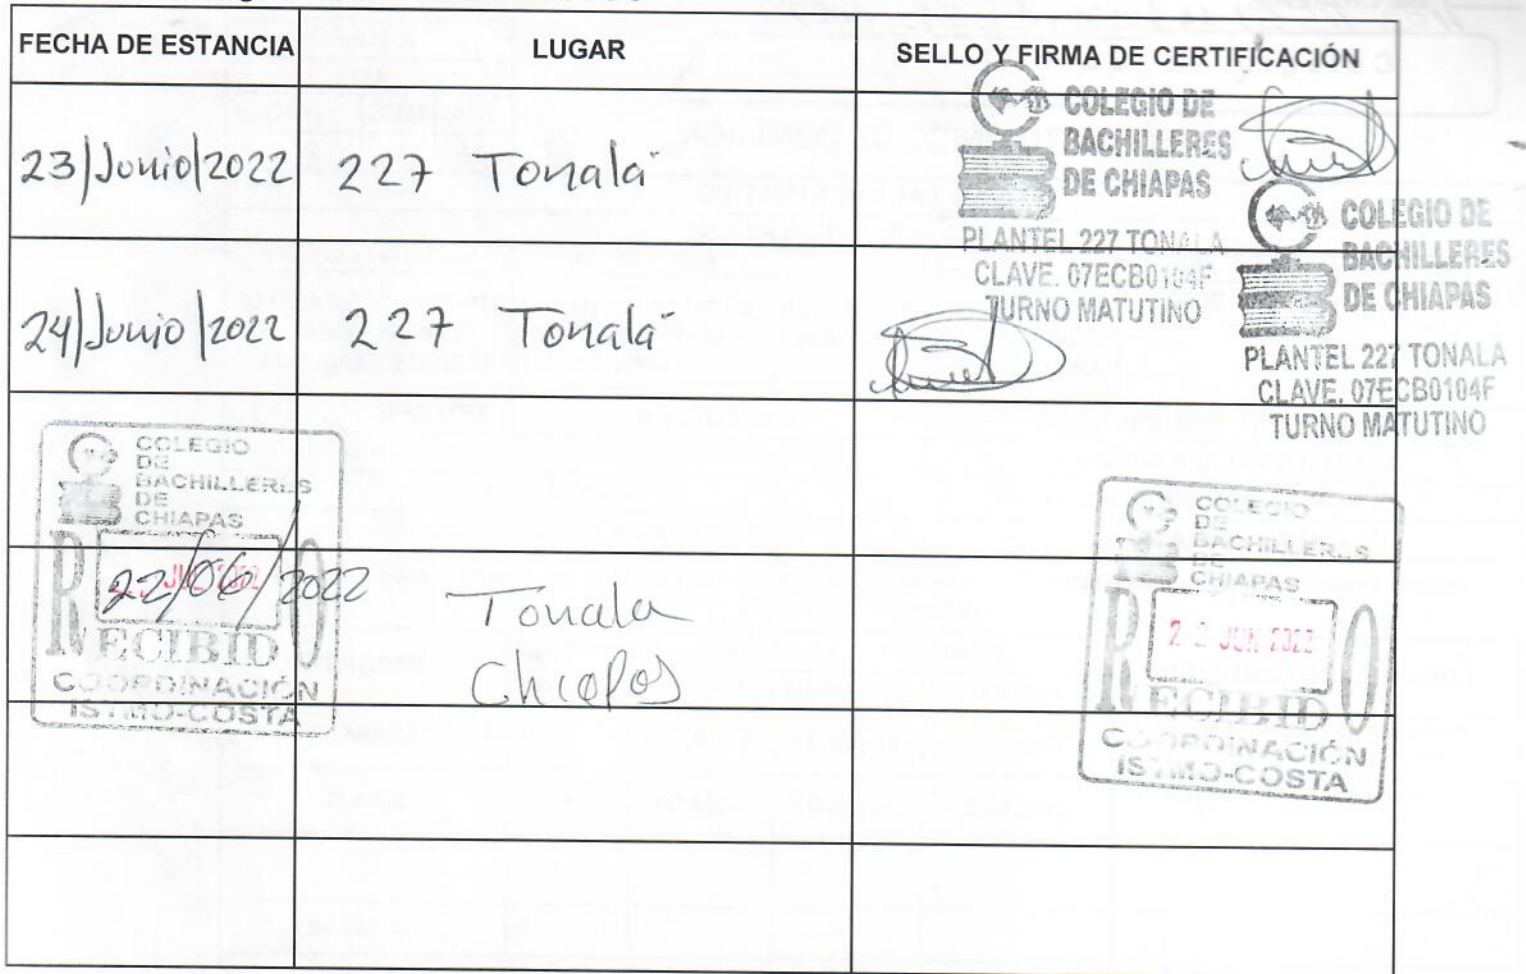 FECHA DE ESTANCIA LUGAR SELLO Y FIRMA DE CERTIFICACIÓN
23/Junio/2022 227 Tonalá
COLEGIO DE
BACHILLERES
DE CHIAPAS
PLANTEL 227 TONALA
CLAVE. 07ECB0104F
TURNO MATUTINO
24/Junio/2022 227 Tonalá
COLEGIO DE
BACHILLERES
DE CHIAPAS
PLANTEL 227 TONALA
CLAVE. 07ECB0104F
TURNO MATUTINO
COLEGIO
DE
BACHILLERES
DE
CHIAPAS
22/06/2022
RECIBIDO
COORDINACIÓN
ISTMO-COSTA
Tonala
Chiapas
COLEGIO
DE
BACHILLERES
DE
CHIAPAS
22 JUN 2022
RECIBIDO
COORDINACIÓN
ISTMO-COSTA